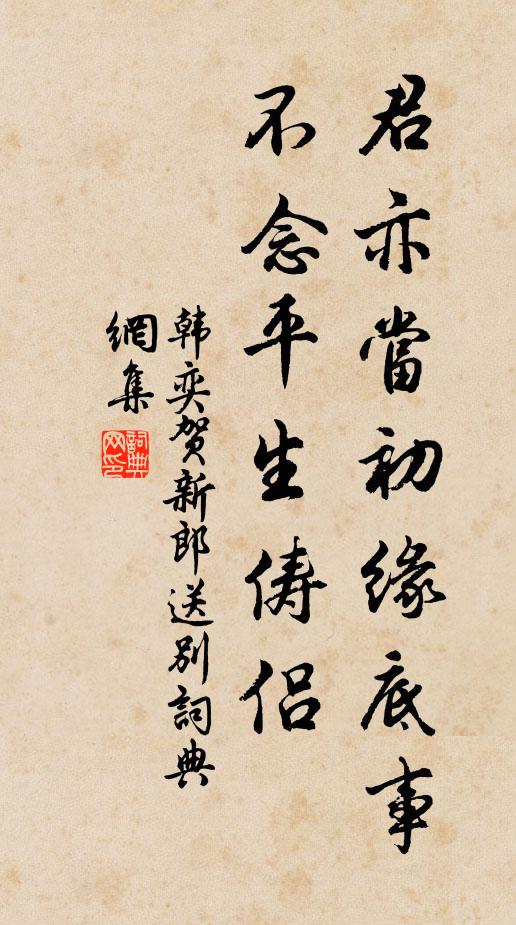 君亦當初緣底事
不念平生儔侶
韩奕贺新郎送别詞典
網集
詞典网印